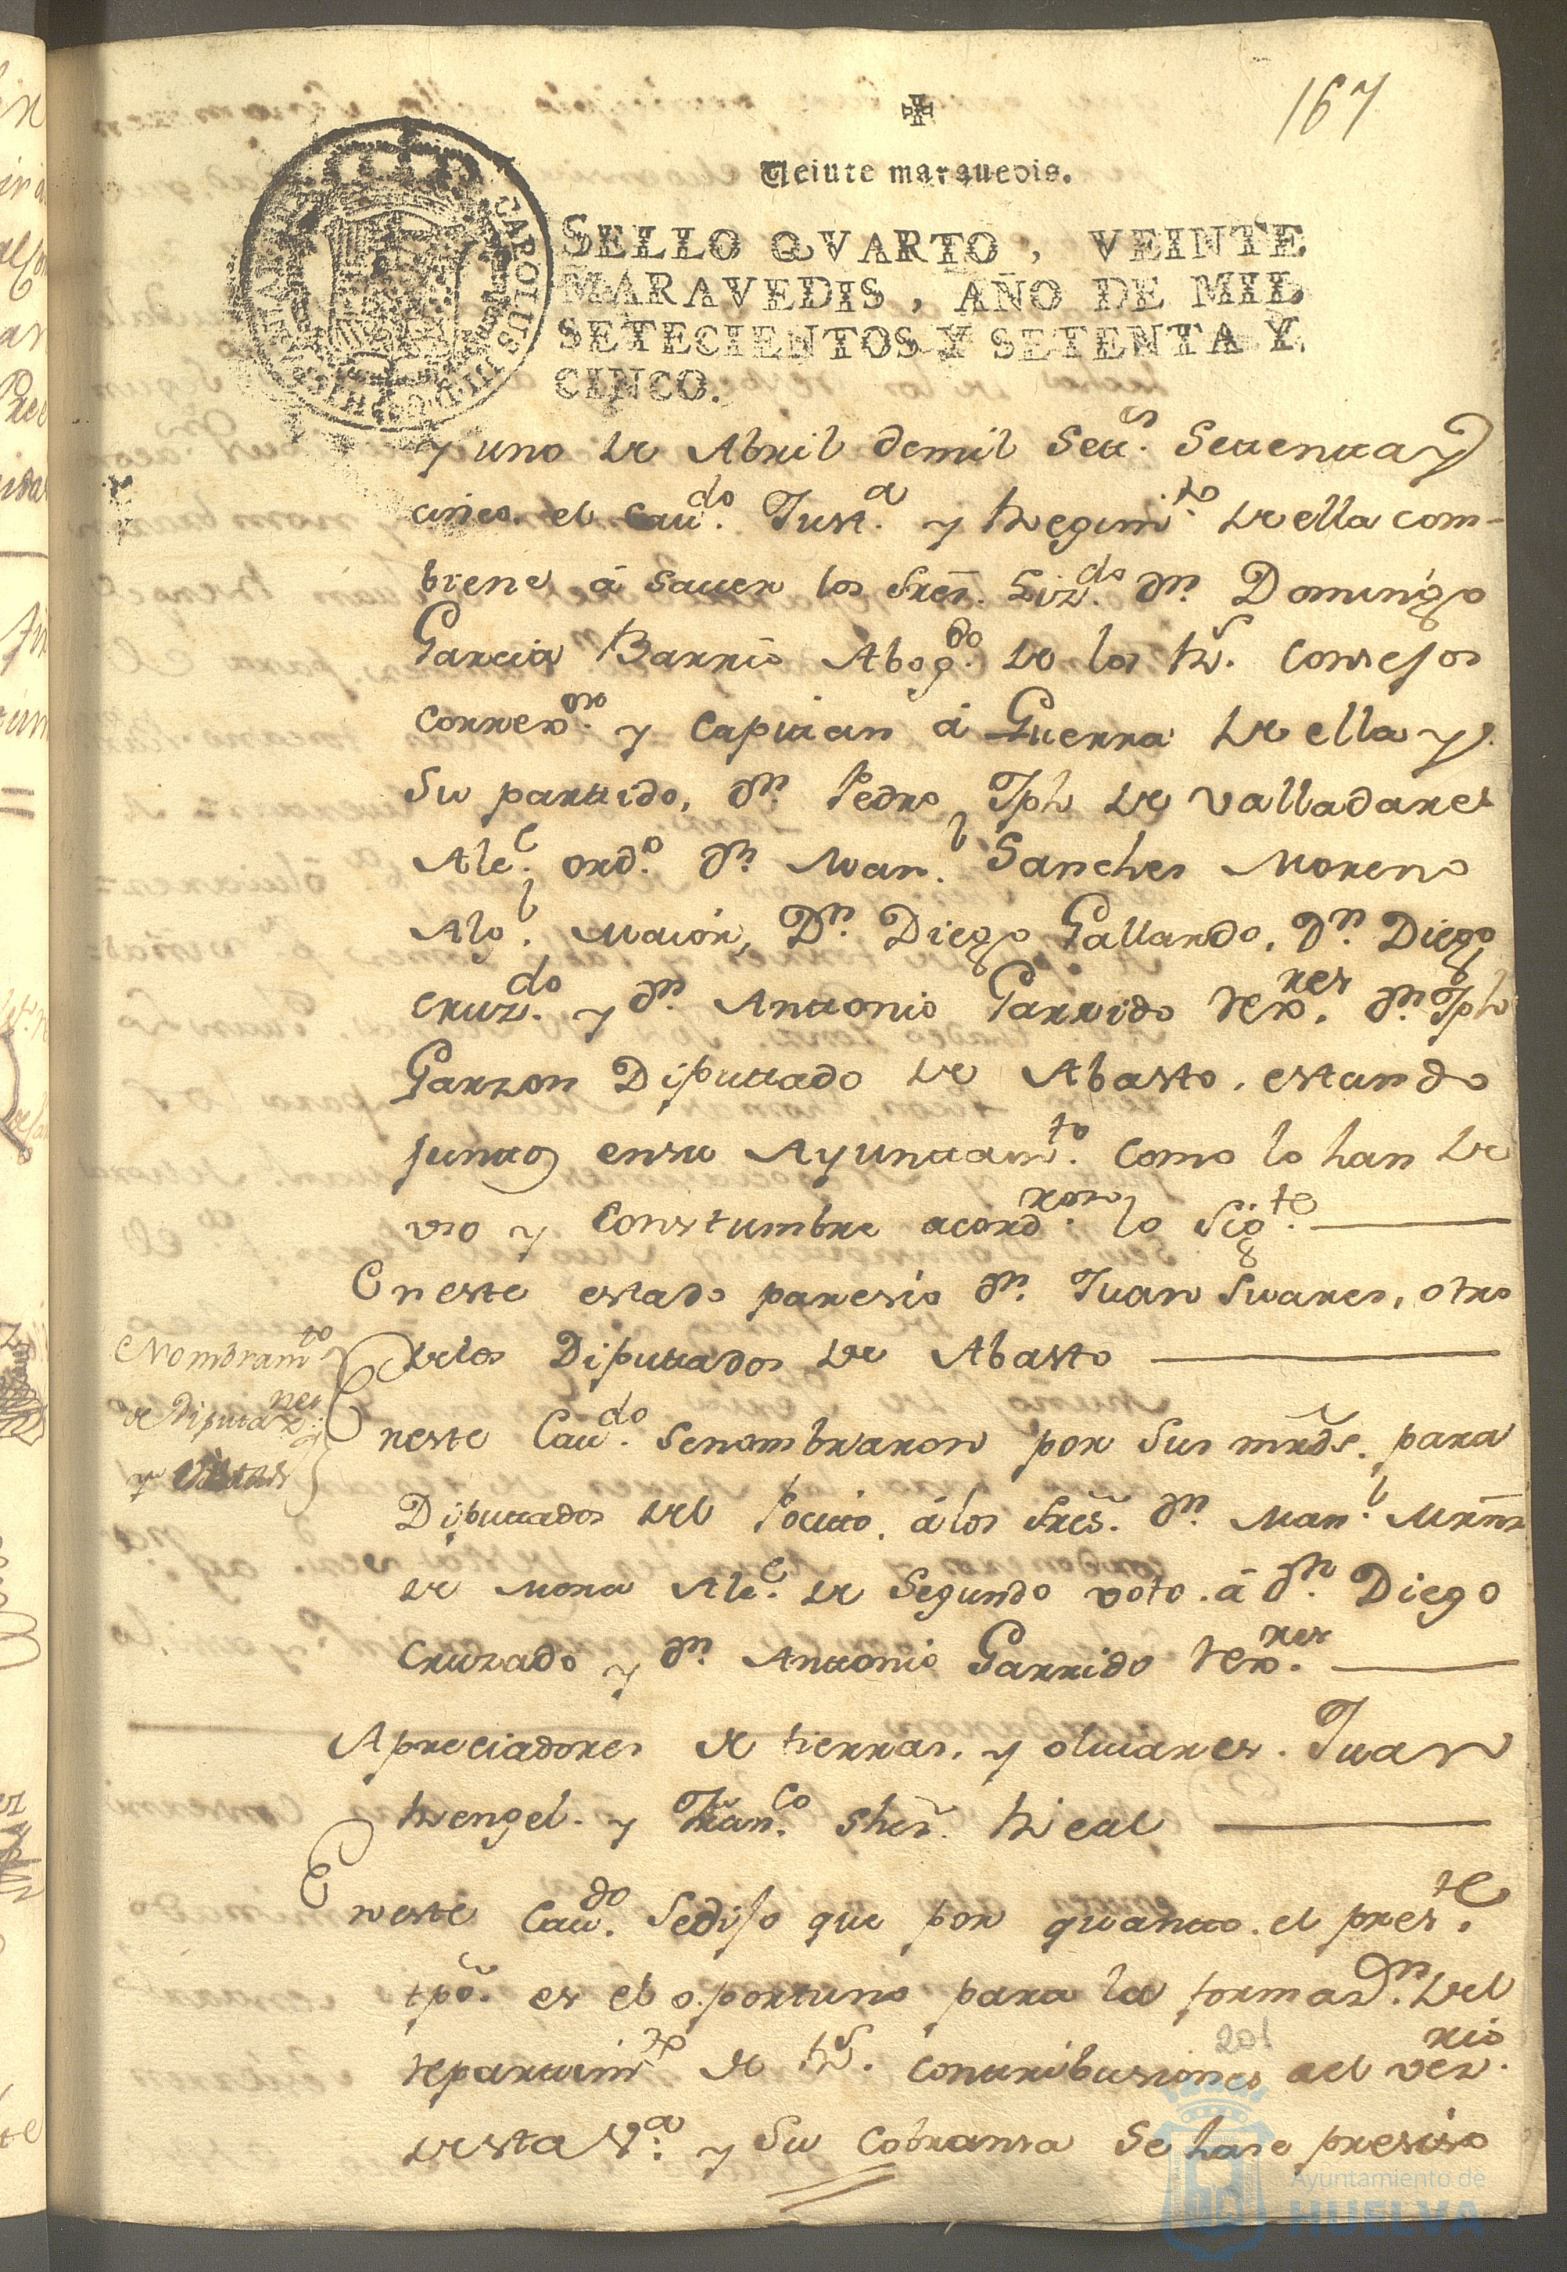 167
Veinte marauedis.
SELLO QVARTO, VEINTE
MARAVEDIS, AÑO DE MIL
SETECIENTOS Y SETENTA Y
CINCO.
CAROLUS III D G HISPANIAR
y uno de Abril demil Setts. Settentta y
cinco. el Caudo. Justa. y Regimto. de ella com-
biene á sauer los Sres. Lizdo. Dn. Domingo
Garcia Barrio Abogdo. de los Rs. Consejos
Correxor. y Capittan á Guerra de ella y
Su parttido, Dn. Pedro Jph de Valladares
Alce. ordo. Dn. Manl. Sanches Moreno
Algl. Maior, Dn. Diego Gallardo, Dn. Diego
Cruzdo. y Dn. Anttonio Garrido Rexres. Dn. Jph
Garzon Diputtado de Abasto, estando
junttos ensu Ayunttamto. Como lo han de
uso y Constumbre acordron. lo Sigte.
Eneste estado paresio Dn. Juan Suares, otro
delos Diputtados de Abasto
Nombramto
de Diputaznes
y
Eneste Caudo. Senombraron por Sus mrds. para
Diputtados del Pocitto, á los Sres. Dn. Manl. Mrnz
de Mora Alce. de Segundo voto. á Dn. Diego
Cruzado y Dn. Anttonio Garrido Rexres.
Apreciadores de tierras, y oliuares. Juan
Rengel. y Franco. Shes. Real
Eneste Caudo. Sedijo que por quantto. el preste.
tpo. es el oportuno para la formazn. del
reparttimto de Rs. Conttribusiones del vezrio.
201
desta Va. y Su Cobransa Se hase presiso
Ayuntamiento de
HUELVA